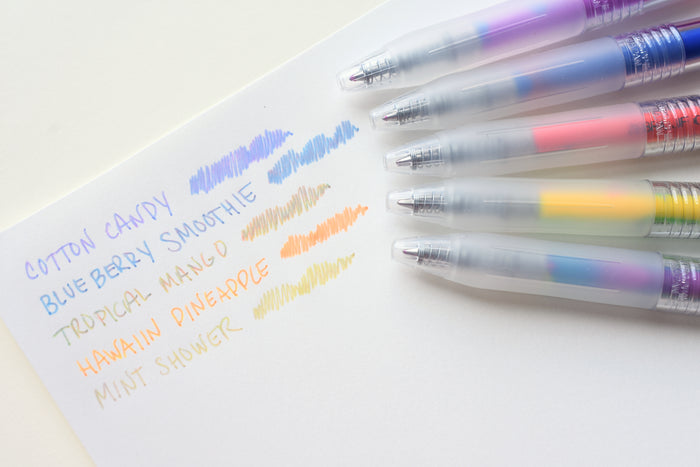 COTTON CANDY
BLUEBERRY SMOOTHIE
TROPICAL MANGO
HAWAIIN PINEAPPLE
MINT SHOWER